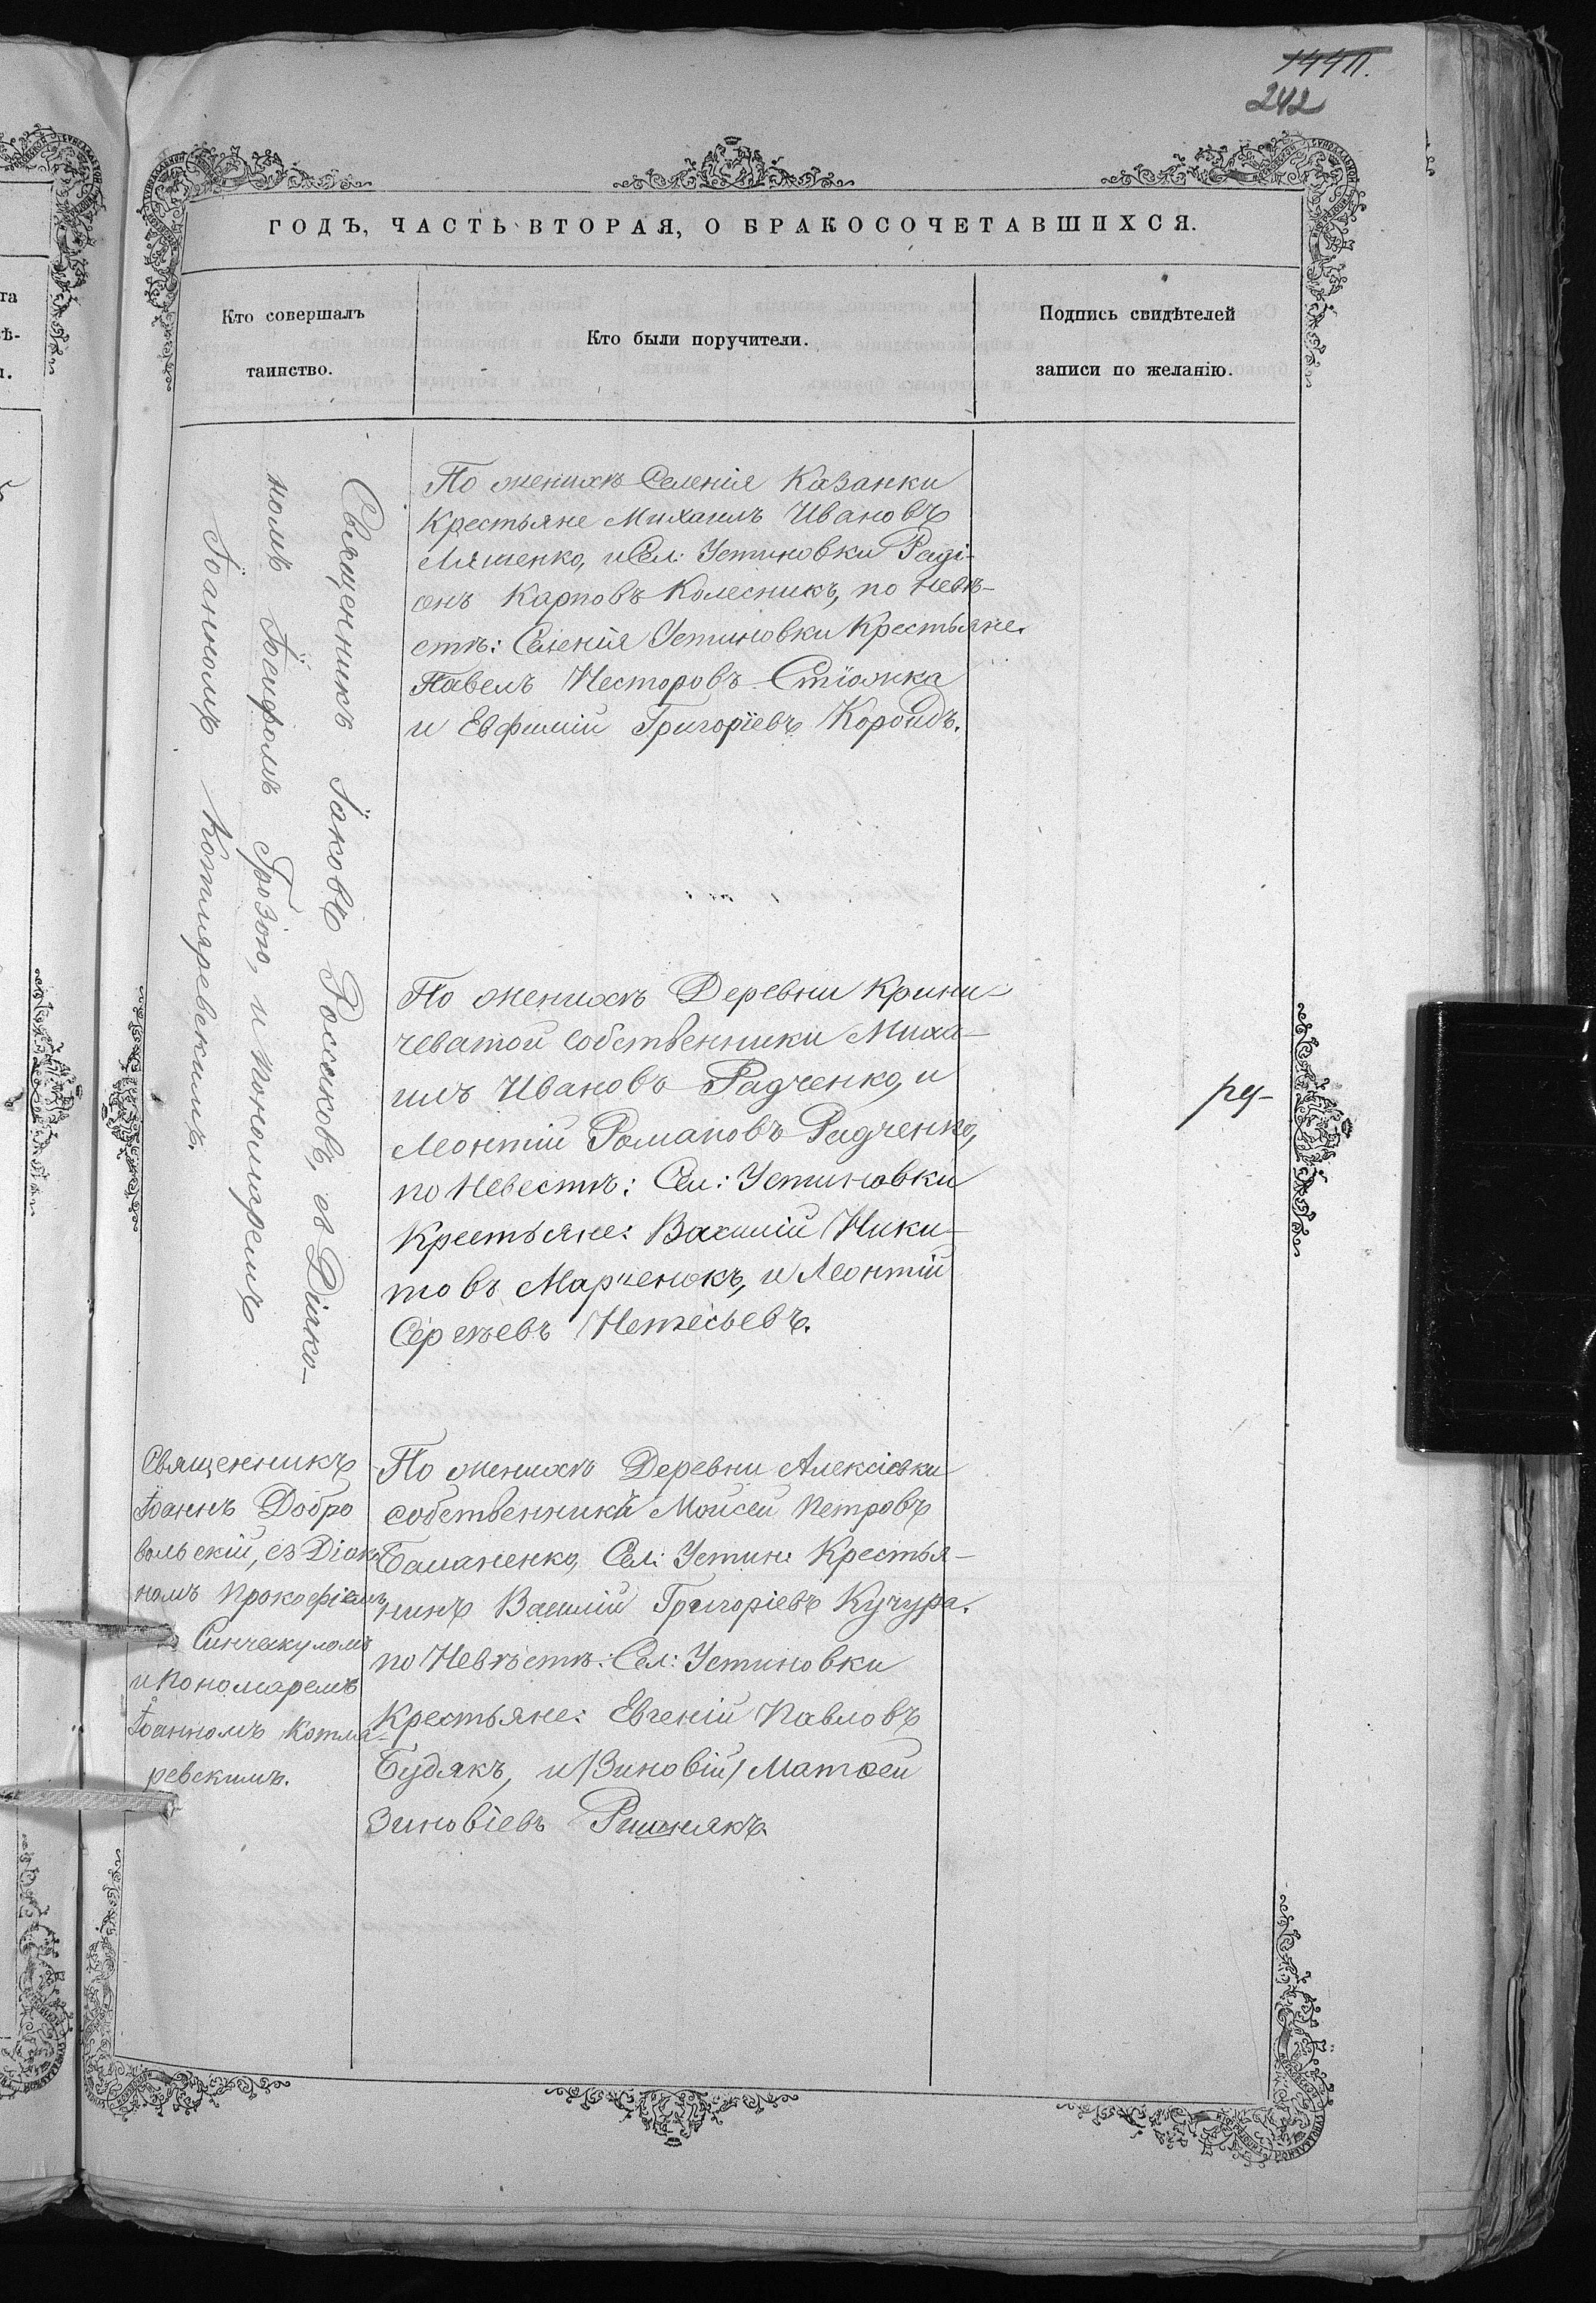 144П.
242
ГОДЪ, ЧАСТЬ ВТОРАЯ, О БРАКОСОЧЕТАВШИХСЯ.
Кто совершалъ
таинство.
Кто были поручители.
Подпись свидѣтелей
записи по желанію.
Священникъ Іаковъ Россиковъ, съ Діяко-
номъ Іосифомъ Грозою, и Пономаремъ
Іоанномъ Котляревскимъ.
По женихѣ Селенія Казанки
Крестьяне Михаилъ Ивановъ
Ляшенко, и Сел: Устиновки Раді-
онъ Карповъ Колесникъ, по Невѣ-
стѣ: Селенія Устиновки Крестьяне.
Павелъ Несторовъ
и Евфимій Григоріевъ Короидъ.
По женихѣ Деревни Крини-
чеватой собственники Миха-
илъ Ивановъ Радченко, и
Леонтій Романовъ Радченко,
по Невестѣ: Сел: Устиновки
Крестьяне: Василій Ники-
товъ Марченокъ, и Леонтій
Сергѣевъ
ру-
Священникъ
Іоаннъ Добро
вольскій, съ Діако
номъ Прокофіемъ
Синчакуломъ
и Пономаремъ
Іоанномъ Котля-
ревскимъ.
По женихѣ Деревни Алексіевки
собственники Моисей Петровъ
Баланенко, Сел: Устин: Крестья-
нинъ Василій Григоріевъ Кучура.
по Невѣстѣ: Сел: Устиновки
Крестьяне: Евгеній Павловъ
Будякъ, и /Зиновій/ Матѳей
Зиновіевъ